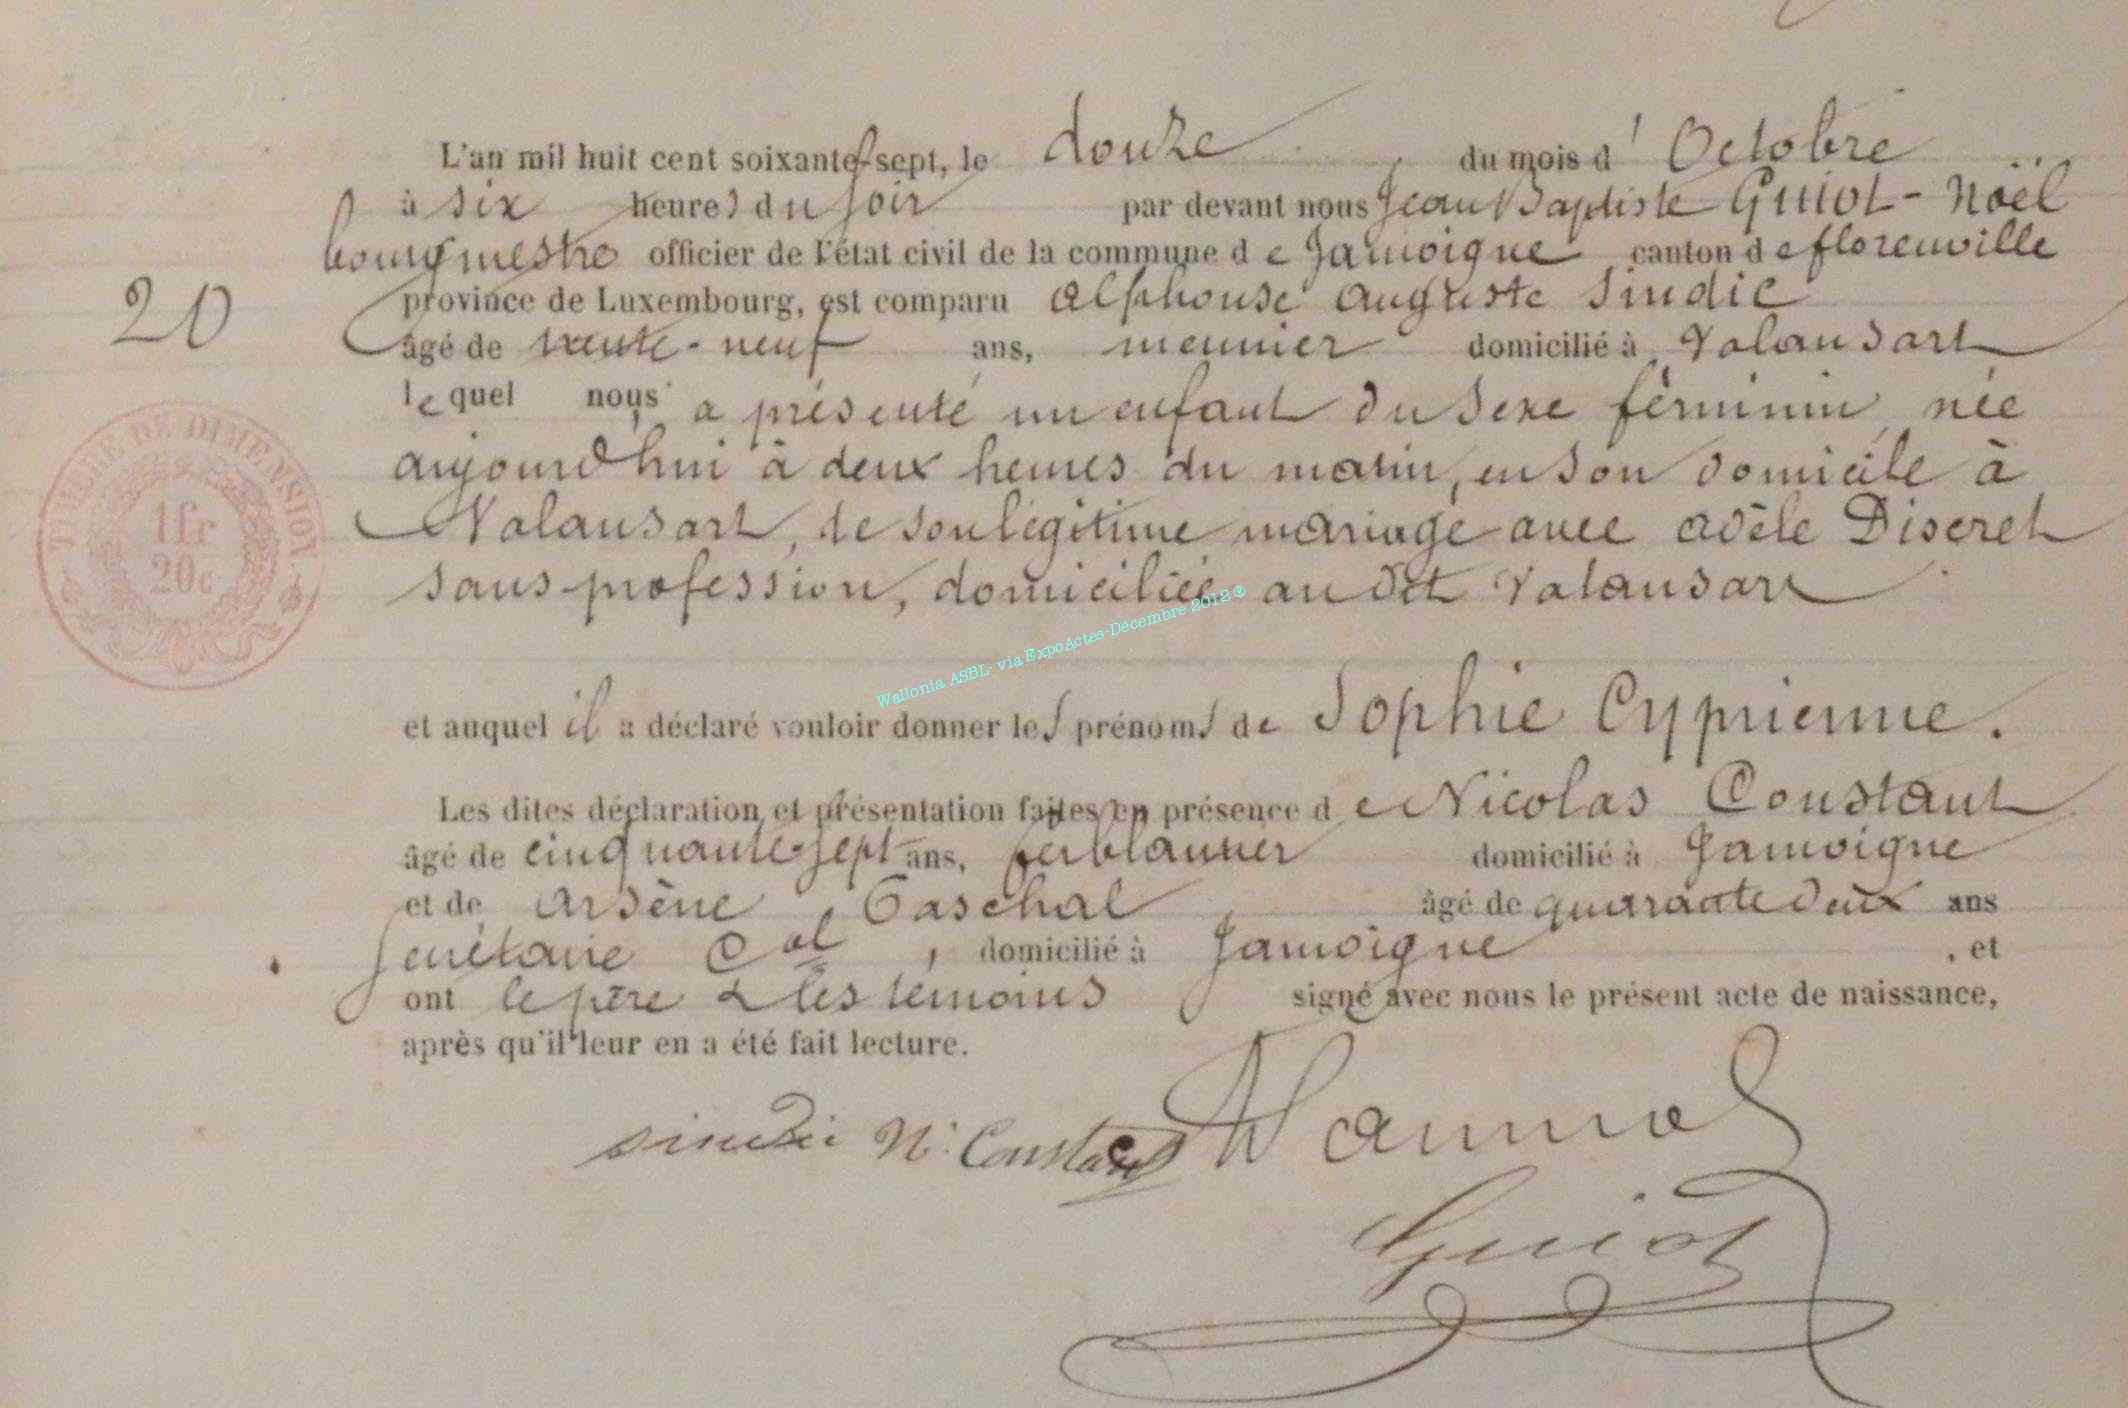 L'an mil huit cent soixante-sept, le douze du mois d'Octobre
à six heures du soir par devant nous Jean Baptiste Guiot-Noël
bourgmestre officier de l'état civil de la commune de Jamoigne canton de florenville
province de Luxembourg, est comparu Alphonse Auguste Sindic
20
âgé de trente-neuf ans, meunier domicilié à Valansart
lequel nous a présenté un enfant du sexe féminin, née
aujourd'hui à deux heures du matin, en son domicile à
Valansart, de son légitime mariage avec Adèle Discret
sans profession, domiciliée au dit Valansart
TIMBRE DE DIMENSION
1fr
20c
Wallonia ASBL- via ExpoActes-Décembre 2012 ®
et auquel il a déclaré vouloir donner les prénoms de Sophie Cyprienne.
Les dites déclaration et présentation faites en présence de Nicolas Constant
âgé de cinquante-sept ans, ferblantier domicilié à Jamoigne
et de Arsène Paschal âgé de quarante deux ans
secrétaire Cal, domicilié à Jamoigne, et
ont le père & les témoins signé avec nous le présent acte de naissance,
après qu'il leur en a été fait lecture.
Sindic N. Constant
Guiot